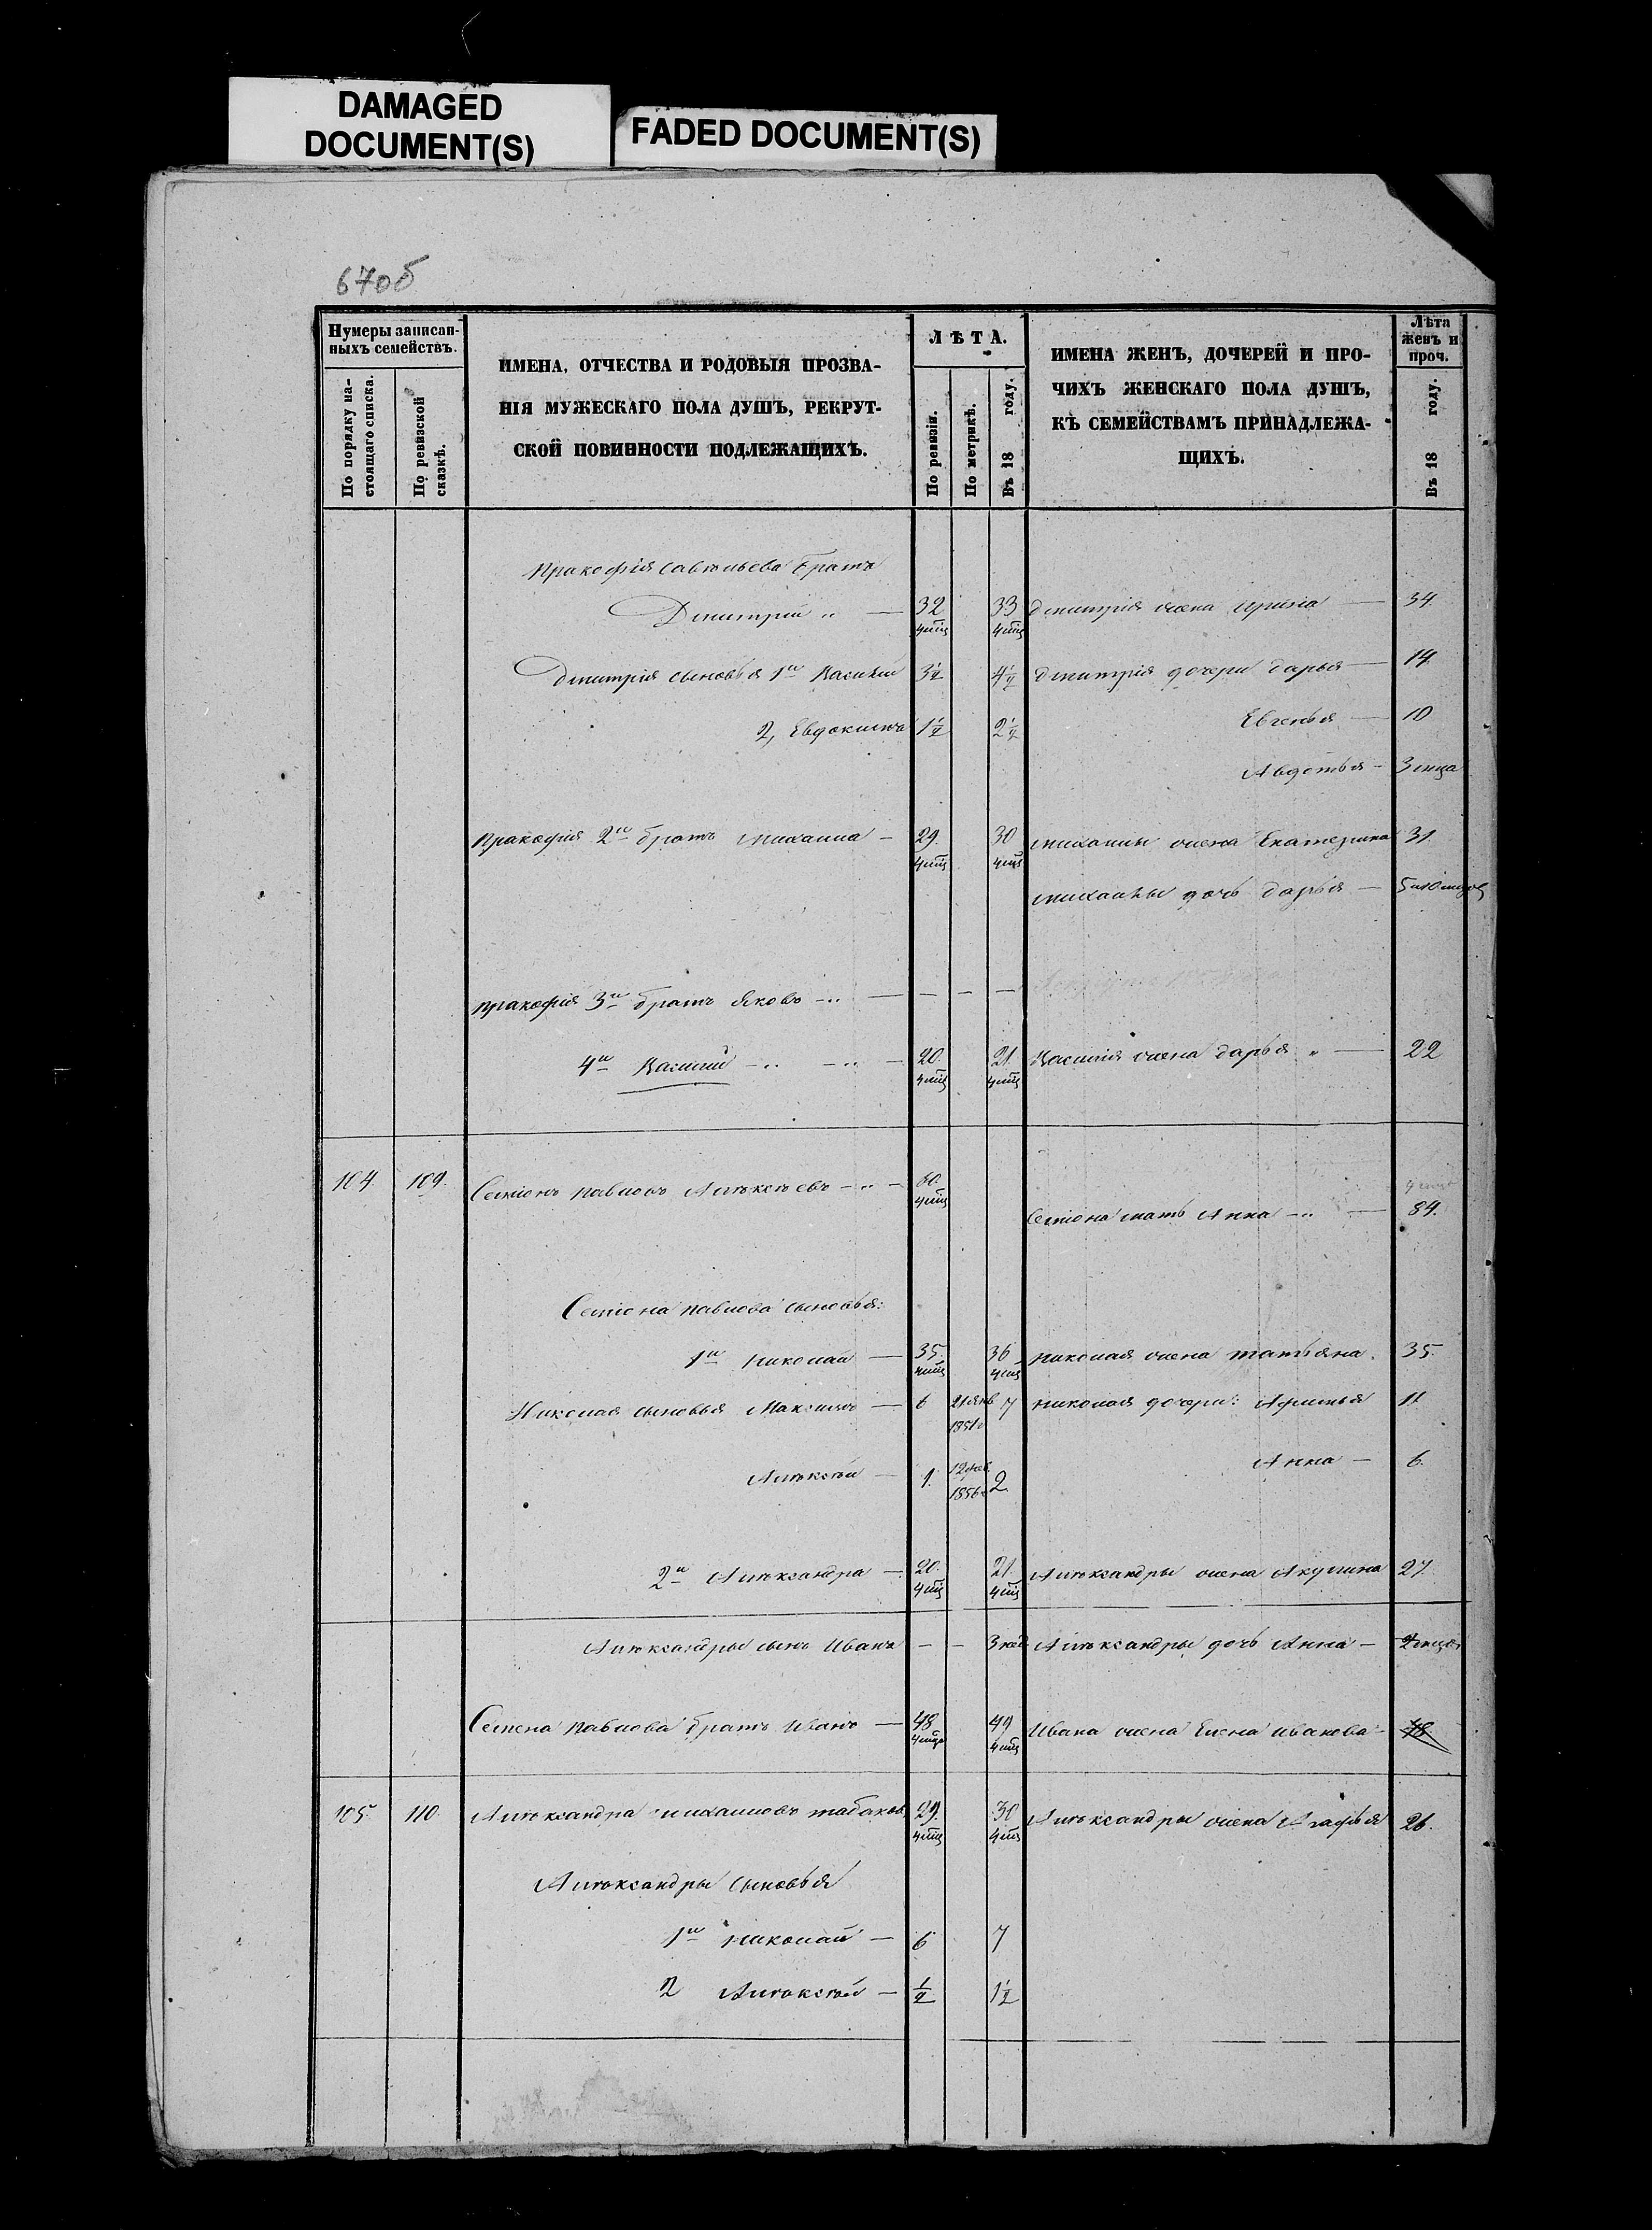 DAMAGED
DOCUMENT(S)
FADED DOCUMENT(S)
670б
Нумеры записан-
ныхъ семействъ.
По порядку на-
стоящаго списка.
По ревизской
сказкѣ.
ИМЕНА, ОТЧЕСТВА И РОДОВЫЯ ПРОЗВА-
НІЯ МУЖЕСКАГО ПОЛА ДУШЪ, РЕКРУТ-
СКОЙ ПОВИННОСТИ ПОДЛЕЖАЩИХЪ.
ЛѢТА.
По ревизіи.
По метрикѣ.
Въ 18 году.
ИМЕНА ЖЕНЪ, ДОЧЕРЕЙ И ПРО-
ЧИХЪ ЖЕНСКАГО ПОЛА ДУШЪ,
КЪ СЕМЕЙСТВАМЪ ПРИНАДЛЕЖА-
ЩИХЪ.
Лѣта
женъ и
проч.
Въ 18 году.
Пракофія Савельева братъ
Дмитрій „ — 32 33 Дмитрія жена Ирина — 34.
4 мц 4 мц
Дмитрія сыновья 1й Василий 3½ 4½ Дмитрія дочери Дарья — 14.
2, Евдокимъ 1½ 2½ Евгенья — 10
Авдотья — 3 мца
Пракофія 2й братъ Михаила — 29. 30 Михаилы жена Екатерина 31.
4 мц 4 мц
Михаилы дочь Дарья —
Пракофія 3й братъ Яковъ — — — —
4й Василий — 20. 21 Василия жена Дарья „ — 22
4 мц 4 мц
104. 109. Семіонъ Павловъ Алѣксѣевъ — 60.
4 мц
Семіона мать Анна — 84.
Семіона Павлова сыновья:
1й Николай — 35. 36 Николая жена Татьяна. 35.
4 мц 4 мц
Николая сыновья Максимъ — 6 21 янв 7 Николая дочери: Афимья 11
1851г
Алѣксѣй — 1. 2. Анна — 6.
1856г
2й Алѣксандра — 20. 21. Алѣксандры жена Акулина 27.
4 мц 4 мц
Алѣксандры сынъ Иванъ — — Алѣксандры дочь Анна —
Семена Павлова братъ Иванъ — 48 49 Ивана жена Елена Иванова — 48.
4 мц 4 мц
105. 110. Алѣксандра Михаиловъ Табаков 29. 30 Алѣксандры жена Агафья 26.
4 мц 4 мц
Алѣксандры сыновья
1й Николай — 6 7
2 Алѣксѣй — ½ 1½